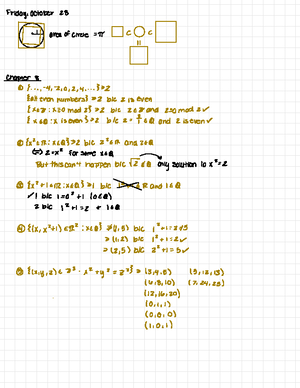 Friday, October 28
area of circle = π
Chapter 8
① {..., -4, -2, 0, 2, 4, ...} ∋ 2
{all even numbers} ∋ 2 b/c 2 is even
{x∈ℤ : x≡0 mod 2} ∋ 2 b/c 2∈ℤ and 2≡0 mod 2 ✓
{x∈ℚ : x is even} ∋ 2 b/c 2 = ∈ℚ and 2 is even ✓
② 2 b/c 2∈ℝ and
2=x² for some x∈ℚ
But this can't happen b/c √2 ∉ℚ only solution to x²=2
③ {x²+1∈ℝ : x∈ℚ} ∋ 1 b/c ℝ and 1∈ℚ
✓ 1 b/c 1=0²+1 (0∈ℚ)
2 b/c 1²+1=2 + 1∈ℚ
④ {(x, x²+1)∈ℝ² : x∈ℚ} ∌ (1,5) b/c 1²+1=2≠5
∋ (1,2) b/c 1²+1=2 ✓
∋ (2,5) b/c 2²+1=5 ✓
⑤ {(x,y,z)∈ℤ³ : x²+y²=z²} ∋ (3,4,5) (5,12,13)
(6,8,10) (7,24,25)
(12,16,20)
(0,1,1)
(0,0,0)
(1,0,1)